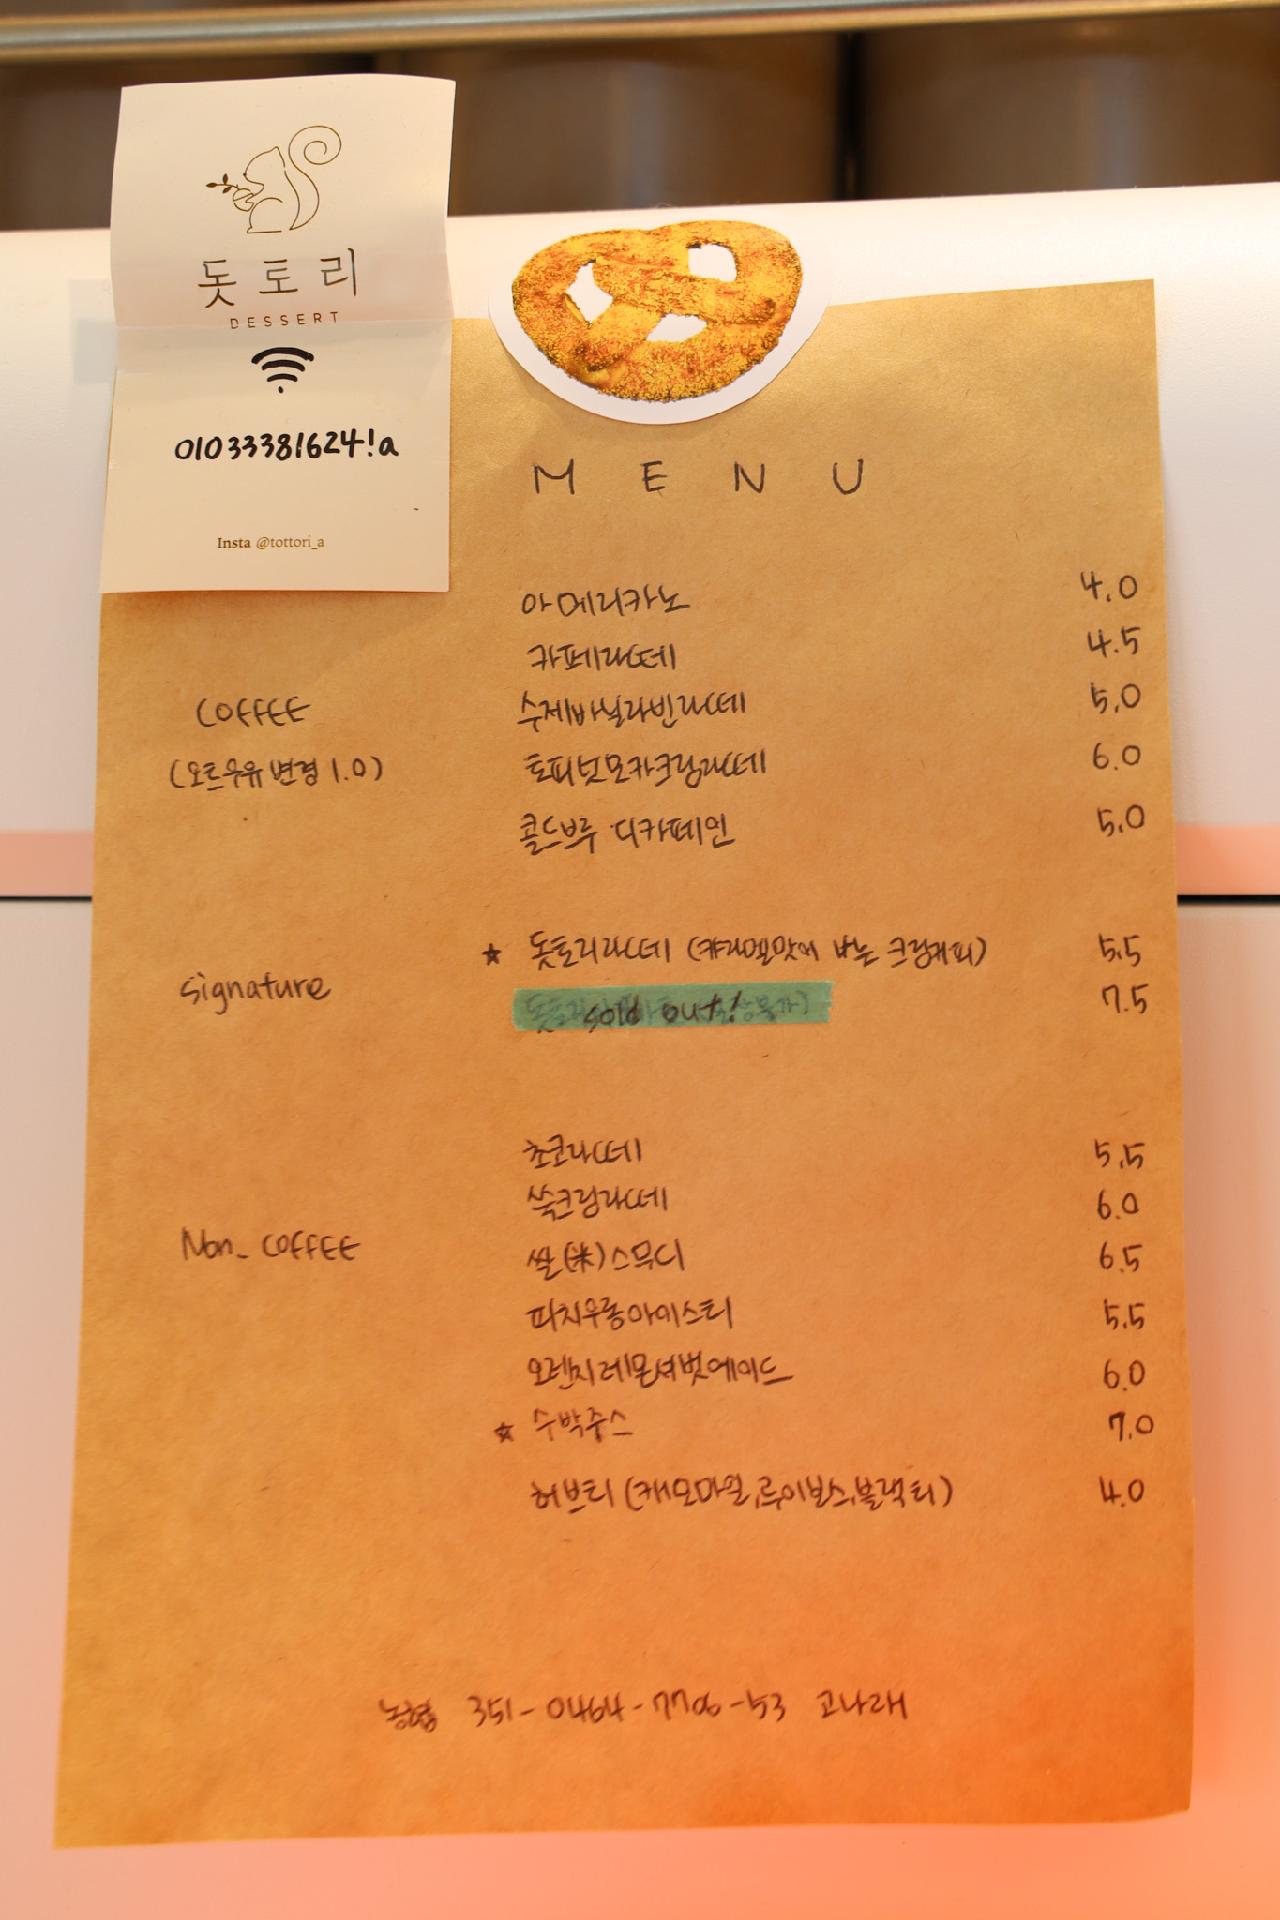 돗토리
DESSERT
01033381624!a
Insta @tottori_a
MENU
아메리카노 4.0
카페라떼 4.5
COFFEE 수제바닐라빈라떼 5.0
(오트우유 변경 1.0) 토피넛모카크림라떼 6.0
콜드브루 디카페인 5.0
★ 돗토리라떼 (캬라멜맛이 나는 크림커피) 5.5
Signature sold out! 7.5
초코라떼 5.5
쑥크림라떼 6.0
Non-COFFEE 쌀(米)스무디 6.5
피치우롱아이스티 5.5
오렌지레몬셔벗에이드 6.0
★ 수박주스 7.0
허브티 (캐모마일,루이보스,블랙티) 4.0
농협 351-0464-7706-53 고나래